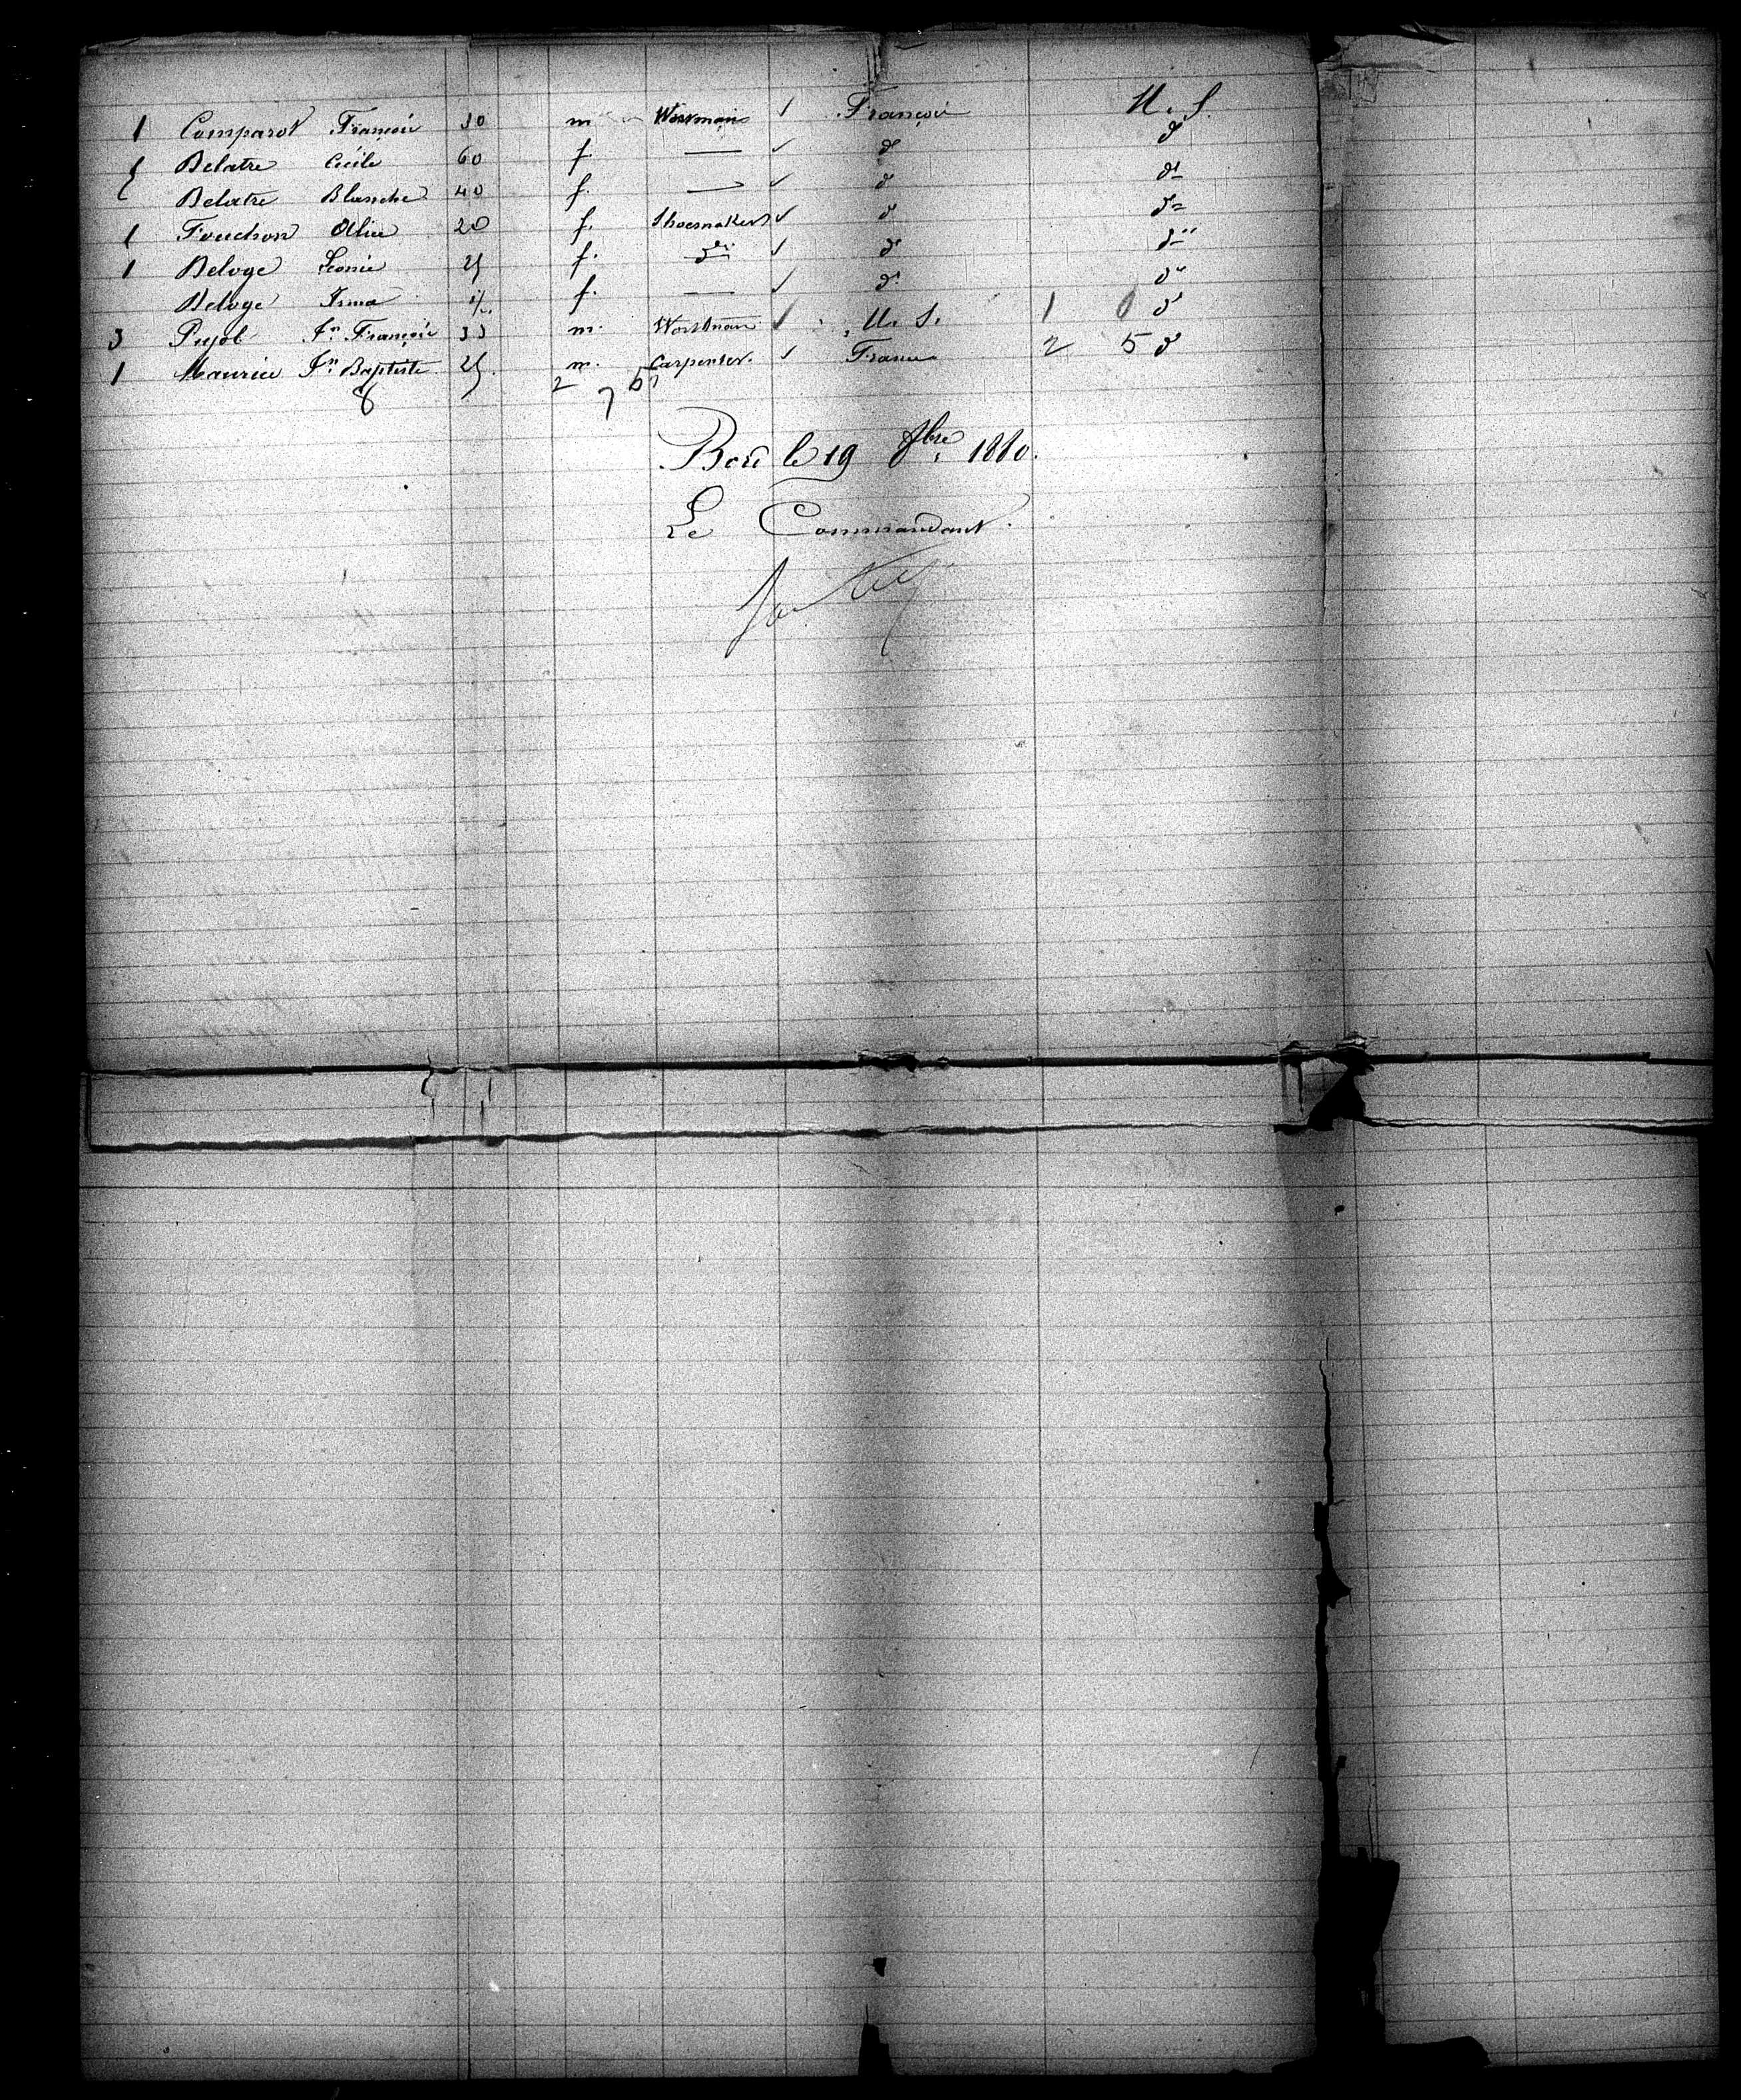 1 Comparot François 30 m Workman ✓ François U. S.
{ Delatre Cécile 60 f. — ✓ do do
Delatre Blanche 40 f. — ✓ do do
1 Fouchon Alice 20 f. Shoesmaker ✓ do do
1 Deloge Leonie 25 f. do ✓ do do
Deloge Irma f. — ✓ do do
3 Pujol Jn François 33 m. Workman ✓ U. S. 1 0 do
1 Maurice Jn Baptiste 25. m. Carpenter. ✓ France 2 5 do
8 2 7 6
Bord le 19 8bre 1880.
Le Commandant.